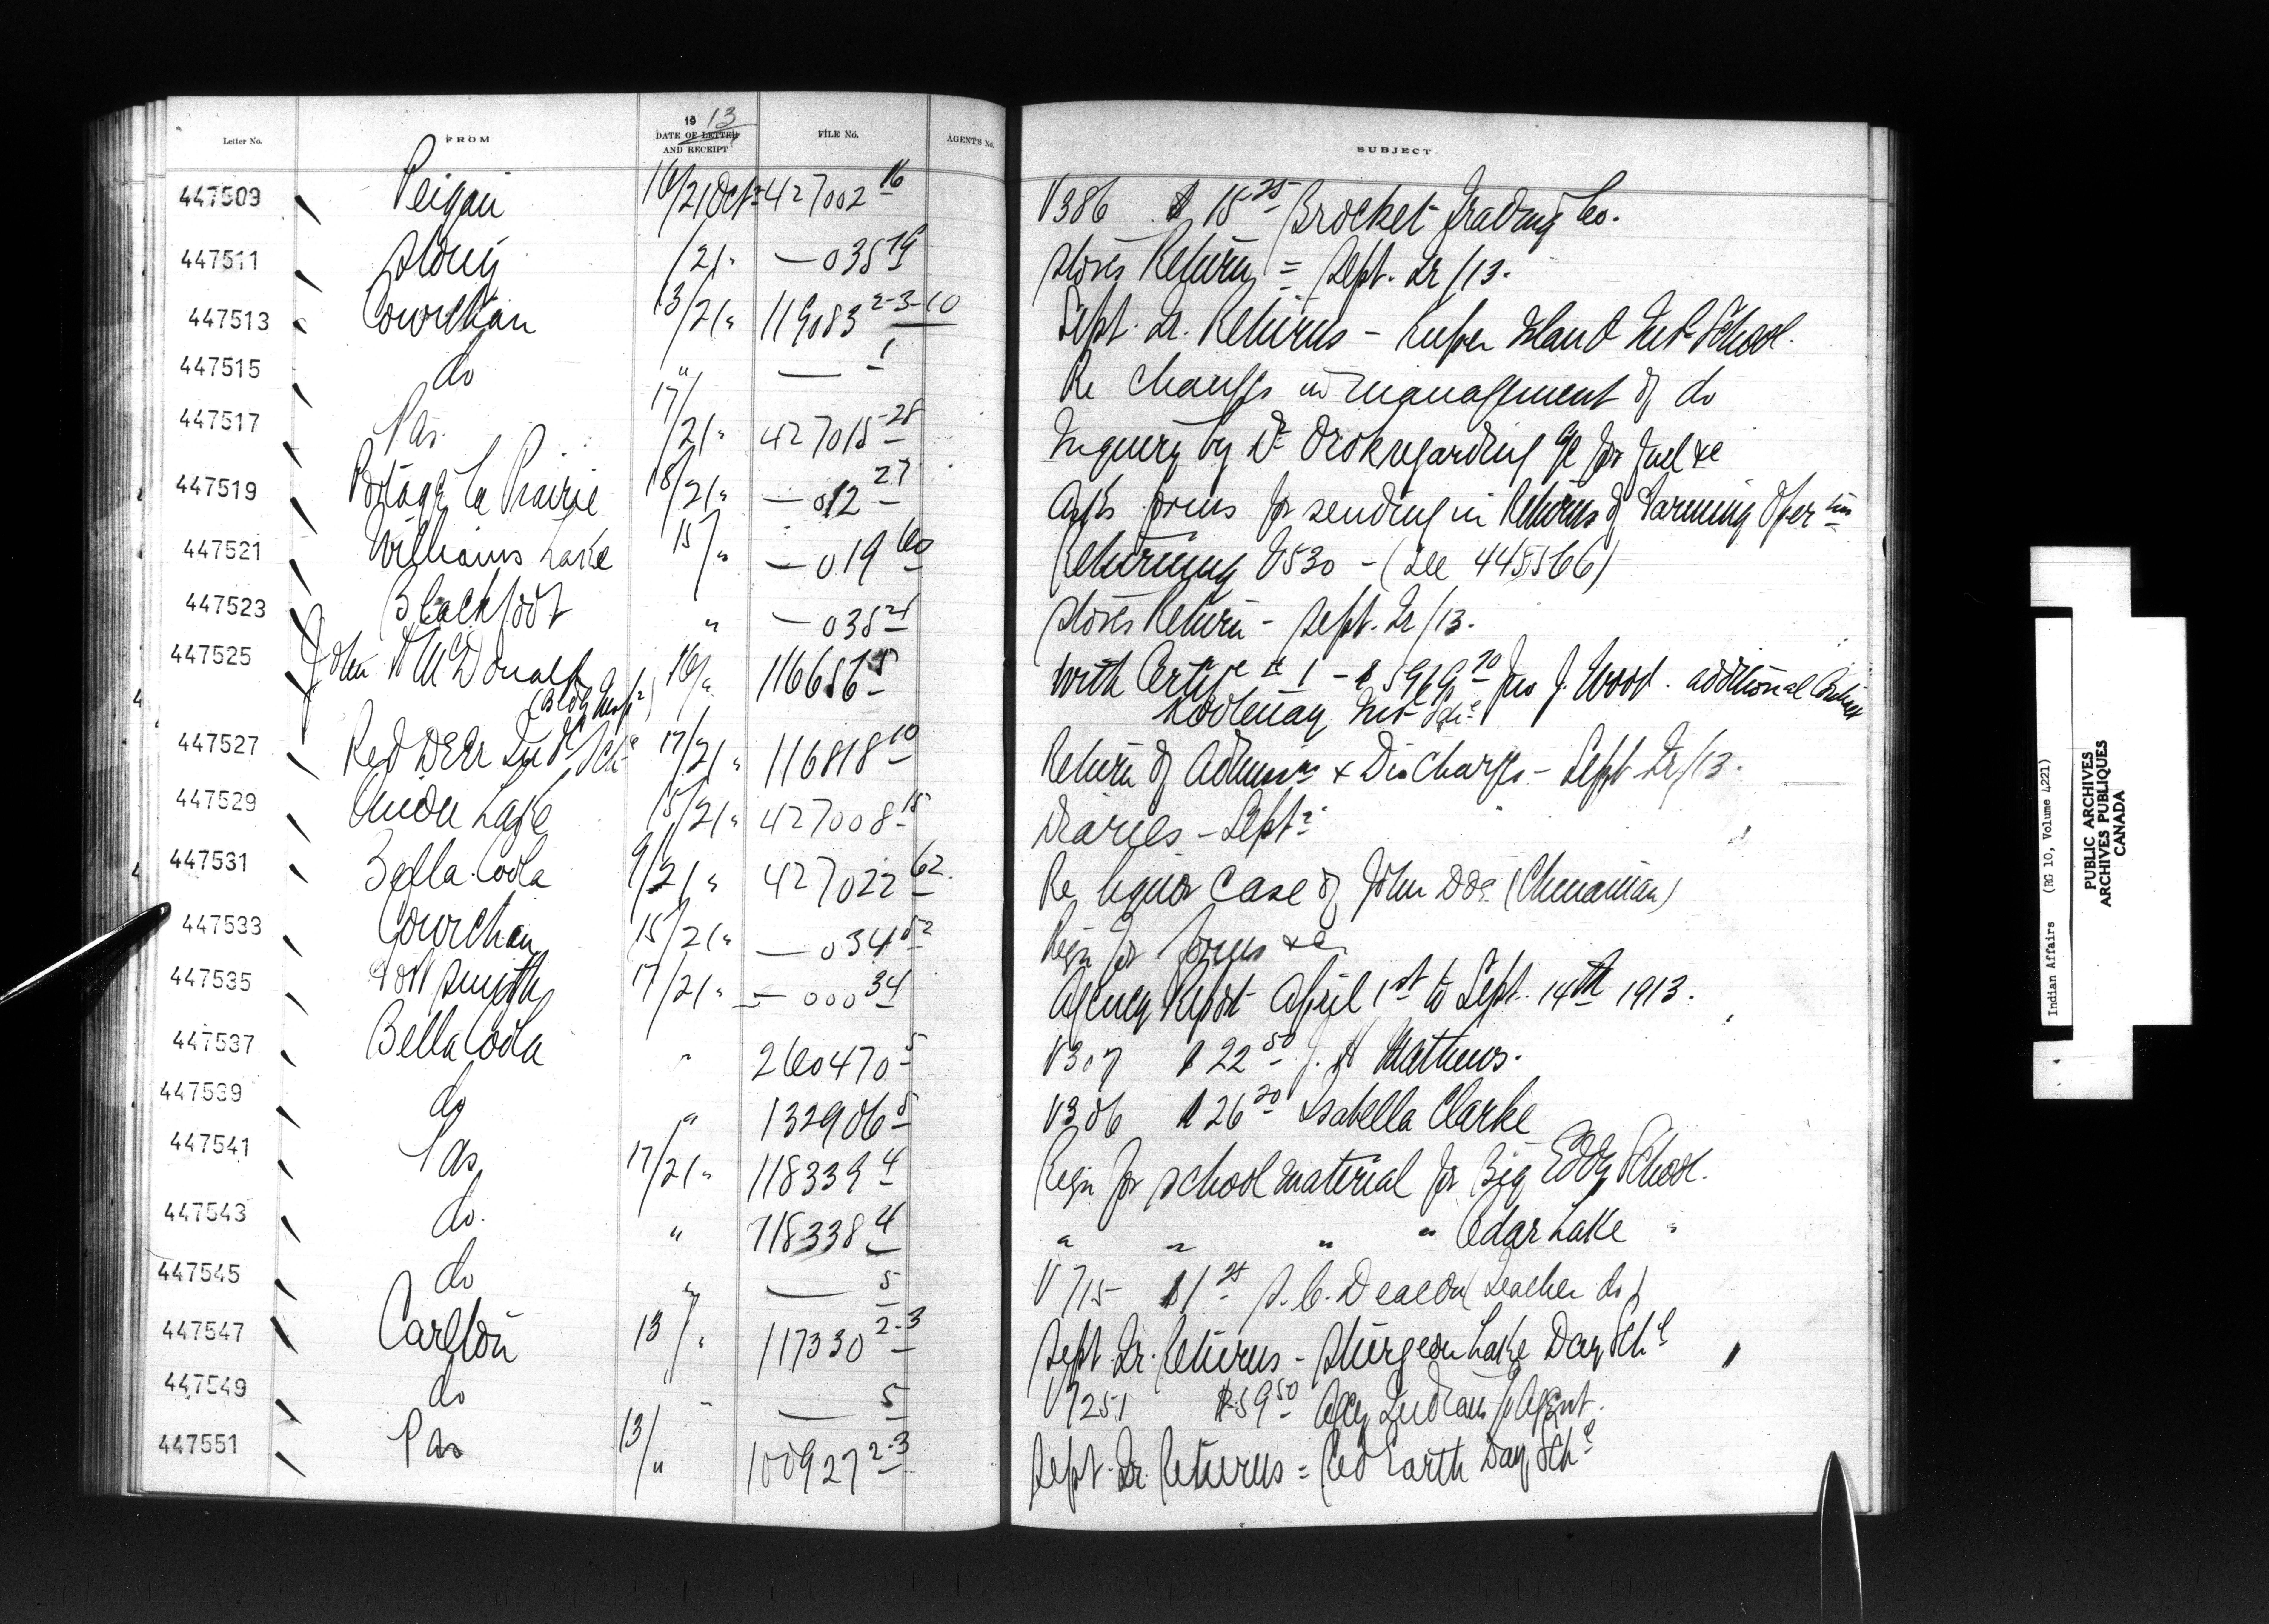 Letter No. FROM 1913 DATE OF LETTER AND RECEIPT FILE No. AGENT'S No. SUBJECT
447509 Peigan 16/21 Oct 427002 16 V386 $15 25 Brocket Trading Co.
447511 Stony /21 " — 035 19 Stores Return = Sept. Qr /13.
447513 Cowichan 13/21 " 119083 2-3-10 Sept. Qr. Returns - Kuper Island Ind School.
447515 do " — 1 Re changes in management of do
447517 Pas. 17/21 " 427015 28 Inquiry by Dr Orok regarding for fuel &c
447519 Portage la Prairie 18/21 " — 012 27 Asks forms for sending in Returns of Farming Oper ns
447521 Williams Lake 15/ " — 019 60 Returning V530 - (See 445566)
447523 Blackfoot " — 035 21 Stores Return - Sept. Qr /13.
447525 John McDonald 16/ " 116656 5 With Certife # 1 - $5969 70 Jno J. Wood. additional
Kootenay Ind Sch
447527 Red Deer Ind Sch 17/21 " 116818 10 Return of Admns & Discharges - Sept Qr/13.
447529 Onion Lake 15/21 " 427008 15 Diaries - Sept
447531 Bella Coola 9/21 " 427022 62. Re liquor case of John Doe (Chinaman)
447533 Cowichan 15/21 " — 034 52 Reqn for forms &c.
447535 Fort Smith 17/21 " — 000 34 Agency Report April 1st to Sept. 14th 1913.
447537 Bella Coola " 260470 5 V307 $22 50 J. Mathews.
447539 do " 132906 5 V306 $26 20 Isabella Clarke
447541 Pas 17/21 " 118339 4 Reqn for school material for Big Eddy School.
447543 do. " 118338 4 " " " " Cedar Lake "
447545 do " — 5 V715 $1 25 S. C. Deacon (Teacher do)
447547 Carlton 13/ " 117330 2-3 Sept. Qr. Returns - Sturgeon Lake Day Schl
447549 do " — 5 V7251 $59 50 Indians p Agent.
447551 Pas 13/ " 100927 2-3 Sept. Qr. Returns = Red Earth Day Schl
Indian Affairs (RG 10, Volume 4221)
PUBLIC ARCHIVES
ARCHIVES PUBLIQUES
CANADA